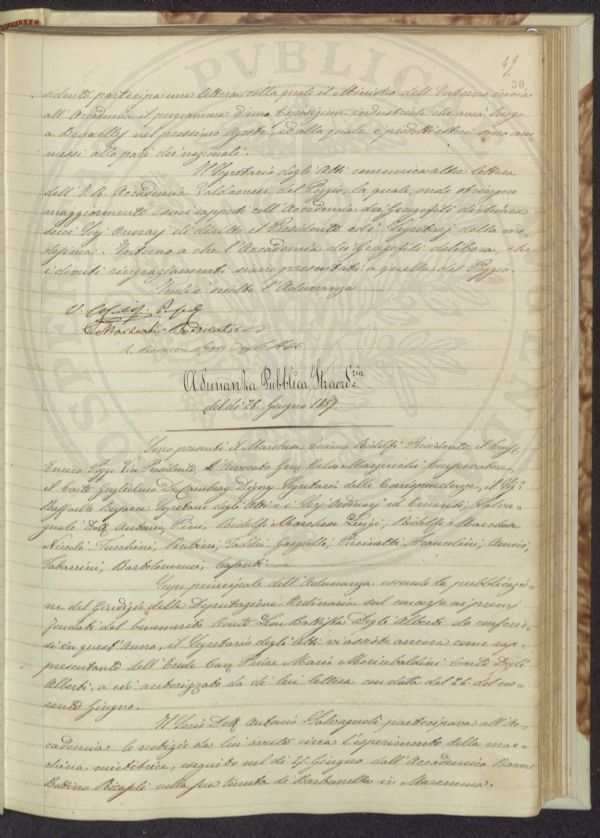 49
30
sidente partecipa una lettera colla quale il Ministro dell'Interno invia
all'Accademia il programma d'una Esposizione industriale che avrà luogo
a Bruxelles nel prossimo Agosto ed alla quale i prodotti esteri sono am
messi alla pari dei nazionali.
Il Segretario degli Atti comunica altra lettera
dell'I. R. Accademia Valdarnese del Poggio, la quale onde stringere
maggiormente i suoi rapporti coll'Accademia dei Georgofili dichiara
suoi Socj Onorarj di diritto il Presidente ed i Segretarj della me
desima. Intorno a che l'Accademia dei Georgofili delibera, che
i dovuti ringraziamenti siano presentati a quella del Poggio.
Dopo è sciolta l'Adunanza
V. Ridolfi
Segr. degli Atti
Adunanza Pubblica Straord.ria
del dì 28. Giugno 1857.
Sono presenti il Marchese Cosimo Ridolfi Presidente, il Cav.
Enrico Poggi Vice Presidente, l'Avvocato Celso Marzucchi Conservatore,
il Conte Guglielmo De Cambray Digny Segretario delle Corrispondenze, il
Raffaello Busacca Segretario degli Atti e i Socj Ordinarj ed Emeriti, Salva-
gnoli Dott. Antonio, Pini, Ridolfi Marchese Luigi, Ridolfi Marchese
Niccolò, Turchini, Rubieri, Taddei, Franceschini, Amici,
Tabarrini, Bartolommei, Casanti.
Scopo principale dell'Adunanza essendo la pubblicazio-
ne del Giudizio della Deputazione Ordinaria sul concorso ai premj
fondati dal benemerito Conte Leon Battista Degli Alberti da conferir-
si in quest'Anno, il Segretario degli Atti vi assiste ancora come rap-
presentante dell'Erede Cav. Priore Mario Moriubaldini Conte Degli
Alberti, a ciò autorizzato da di lui lettera con data del 26 del cor-
rente Giugno.
Il Socio Dott. Antonio Salvagnoli partecipava all'Ac-
cademia le notizie da lui avute circa l'esperimento della mac-
china mietitrice, eseguito nel dì Giugno dall'Accademico Barone
Bettino Ricasoli nella sua tenuta di Barbanella in Maremma.